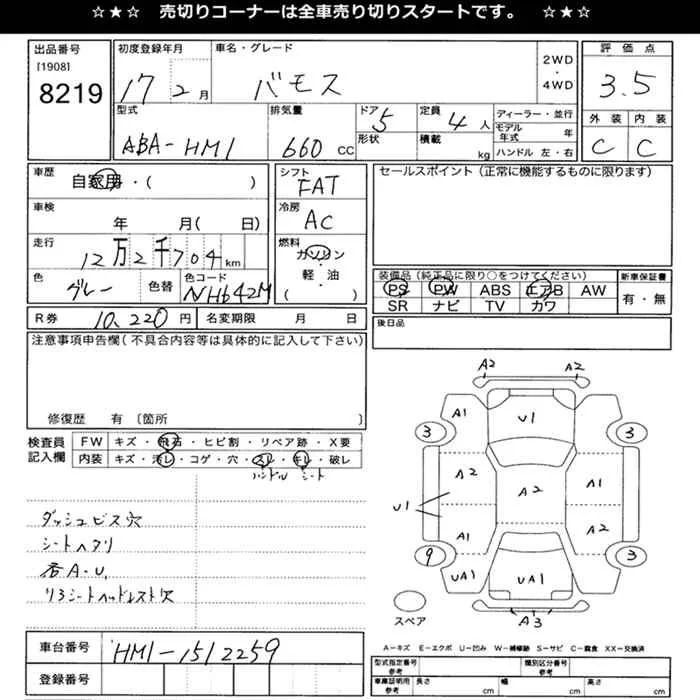 ☆★☆ 売切りコーナーは全車売り切りスタートです。 ☆★☆
出品番号
[1908]
8219
初度登録年月
17 2月
車名・グレード
バモス
2WD
・
4WD
評価点
3.5
外装 内装
C C
型式
ABA-HM1
排気量
660 CC
ドア
5
形状
定員
4人
積載
kg
ディーラー・並行
モデル年式 年
ハンドル 左・右
車歴
自家用・( )
シフト
FAT
車検
年 月( 日)
冷房
AC
走行
12万2千704km
燃料
ガソリン
・
軽・油
( )
色
グレー
色替
色コード
NH642M
R券 10,220円
名変期限 月 日
セールスポイント(正常に機能するものに限ります)
装備品(純正品に限り○をつけてください)
PS PW ABS エアB AW
SR ナビ TV カワ
新車保証書
有・無
後日品
注意事項申告欄(不具合内容等は具体的に記入して下さい)
修復歴 有〔箇所 〕
検査員記入欄
FW キズ・飛石・ヒビ割・リペア跡・X要
内装 キズ・汚レ・コゲ・穴・スレ・キレ・破レ
ハンドル シート
ダッシュビス穴
シートヘタリ
各A・U
リヤシートヘッドレスト穴
A2 A2
A1 U1 A1
3 3
A2 A2 A1
U1
A1 A2
9 3
UA1 UA1
A3
スペア
車台番号 HM1-1512259
登録番号
A-キズ E-エクボ U-凹み W-補修跡 S-サビ C-腐食 XX-交換済
型式指定番号 参考
類別区分番号 参考
車庫証明用 参考
長さ cm 幅 cm 高さ cm